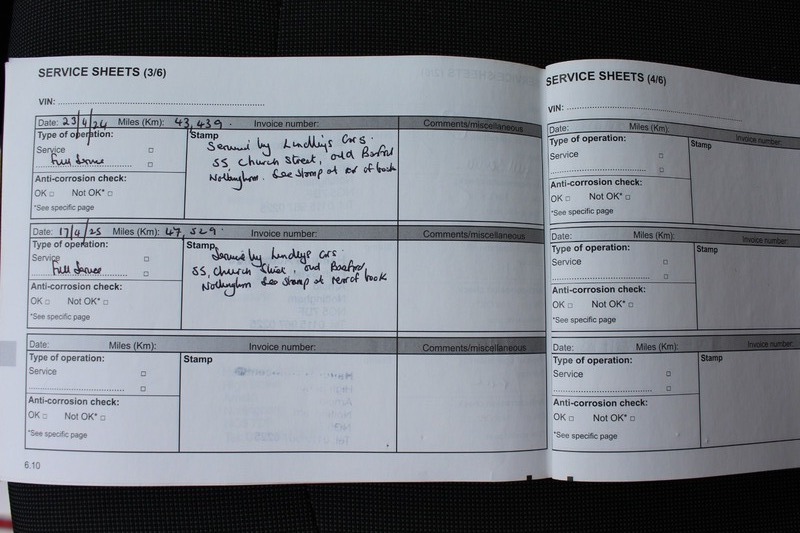 SERVICE SHEETS (3/6)
VIN:
Date: 23/4/24 Miles (Km): 43,439. Invoice number: Comments/miscellaneous
Type of operation: Stamp
Service
Full Service
Serviced by Lindleys Cars.
55 Church Street, old Basford
Nottingham. See stamp at rear of book
Anti-corrosion check:
OK Not OK*
*See specific page
Date: 17/4/25 Miles (Km): 47,529. Invoice number: Comments/miscellaneous
Type of operation: Stamp
Service
Full Service
Serviced by Lindleys Cars.
55, Church Street, old Basford,
Nottingham See stamp at rear of book
Anti-corrosion check:
OK Not OK*
*See specific page
Date: Miles (Km): Invoice number: Comments/miscellaneous
Type of operation: Stamp
Service
Anti-corrosion check:
OK Not OK*
*See specific page
6.10
SERVICE SHEETS (4/6)
VIN:
Date: Miles (Km): Invoice number
Type of operation: Stamp
Service
Anti-corrosion check:
OK Not OK*
*See specific page
Date: Miles (Km): Invoice number
Type of operation: Stamp
Service
Anti-corrosion check:
OK Not OK*
*See specific page
Date: Miles (Km): Invoice number
Type of operation: Stamp
Service
Anti-corrosion check:
OK Not OK*
*See specific page